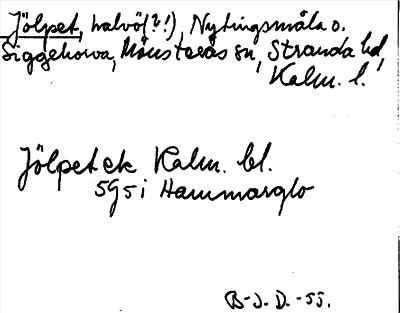 Jölpet, halvö(?!), Nytingsmåla o.
Siggehorva, Mönsterås sn, Stranda hd,
Kalm. l.
Jölpet ek Kalm. bl.
595 i Hammarglo
B-J. D. -55.